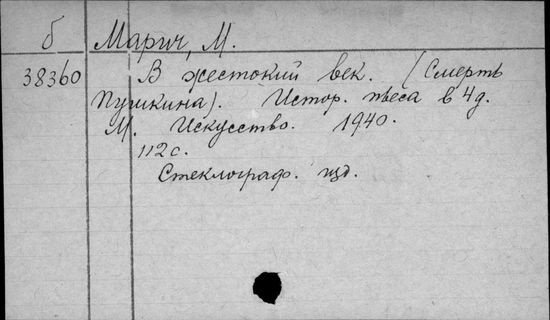 б Марич, М.
38360 В жестокий век. (Смерть
Пушкина). Истор. пьеса в 4 д.
М. Искусство. 1940.
112 с.
Стеклограф. изд.